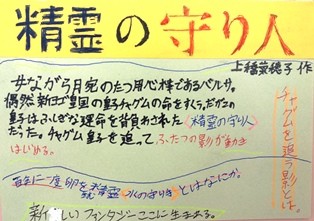 精霊の守り人
上橋菜穂子 作
女ながら用心棒であるバルサ。
偶然新ヨゴ皇国の皇子チャグムの命をすくうがこの
皇子はふしぎな運命を背負わされた「精霊の守り人」
だった。チャグム皇子を追って、ふたつの影が動き
はじめる。
チャグムを追う影とは。
百年に一度卵を
精霊 水の守り手 とはなにか。
新しいファンタジーここに生まれる。